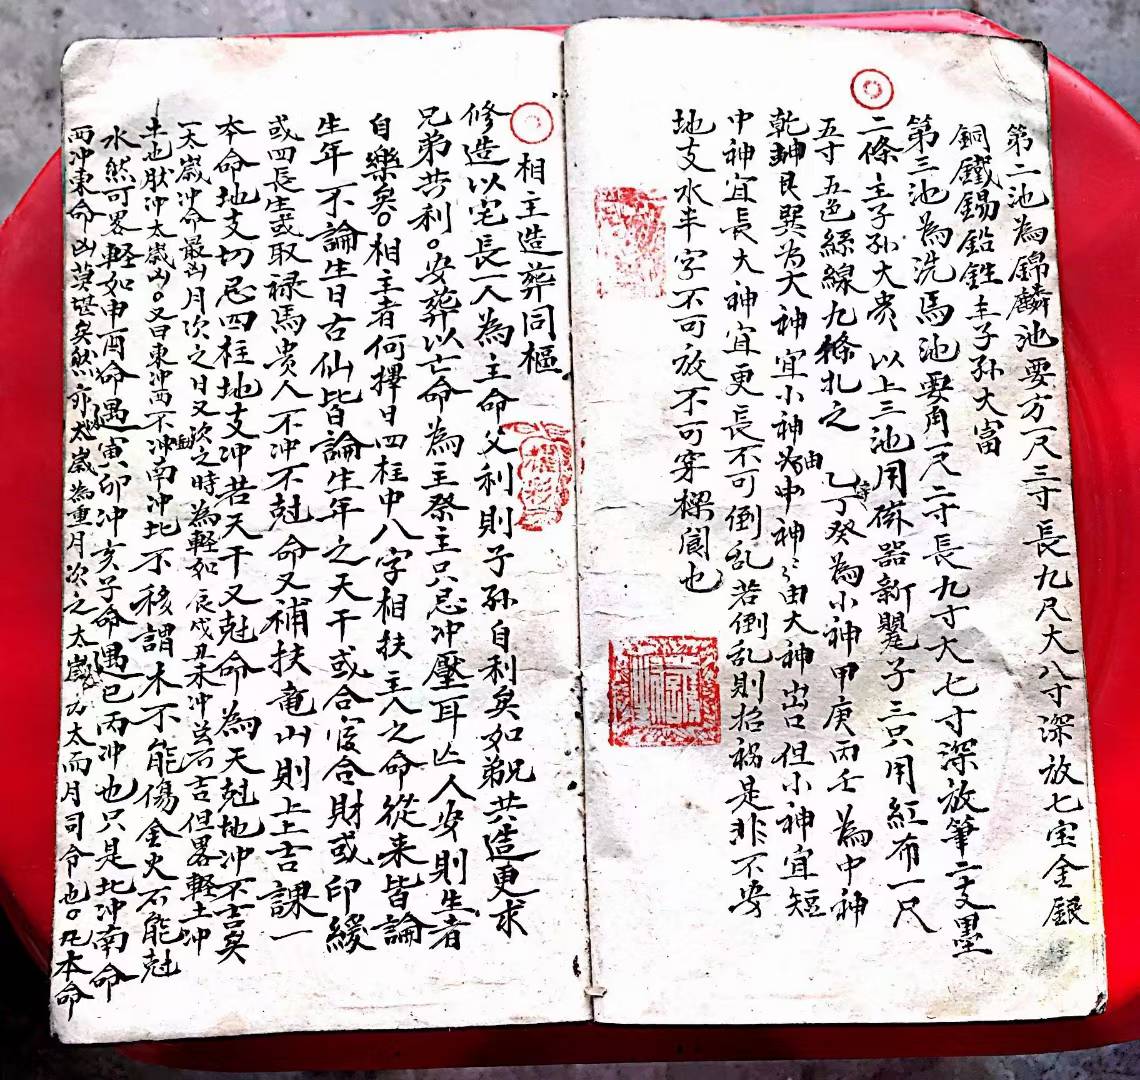 第二池為錦麟池要方一尺三寸長九尺大八寸深放七宝金銀
銅鐵錫鉛鉎主子孫大富
第三池為洗馬池要角一尺二寸長九寸大七寸深放筆二支墨
二條主子孫大贵 以上三池用磁器新 子三只用紅布一尺
五寸五色絲線九條扎之 乙辛丁癸為小神甲庚丙壬為中神
乾坤艮巽為大神宜小神 中神中神由大神出口但小神宜短
中神宜長大神宜更長不可倒乱若倒乱則招祸是非不安
地支水半字不可放不可穿樑 也
相主造葬同樞
修造以宅長一人為主命父利則子孫自利矣如兄弟共造更求
兄弟共利。安葬以亡命為主祭主只忌冲壓耳亡人安則生者
自樂矣。相主者何擇日四柱中八字相扶主人之命從来皆論
生年不論生日古仙皆論生年之天干或合官合財或印綬
或四長生或取禄馬贵人不冲不尅命又補扶竜山則上上吉課一
本命地支切忌四柱地支冲若天干又尅命為天尅地冲不吉矣
一太歲冲命最凶月次之日又次之時為輕如辰戌丑未冲 吉但畧輕土冲
土也 冲太歲凶。又曰東冲西不冲南冲北不移謂木不能傷金火不能尅
水然可畧輕如申酉命遇寅卯冲亥子命遇巳丙冲也只是北冲南命
西冲東命凶莫堪矣然亦太歲為重月次之太歲 太而月司令也。凡本命